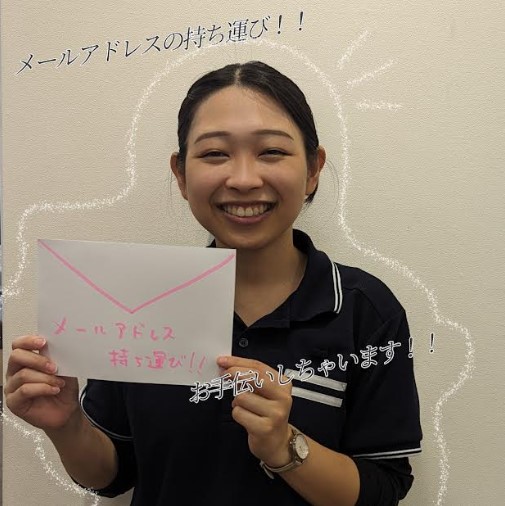 メールアドレスの持ち運び！！
メールアドレス
持ち運び!!
お手伝いしちゃいます！！